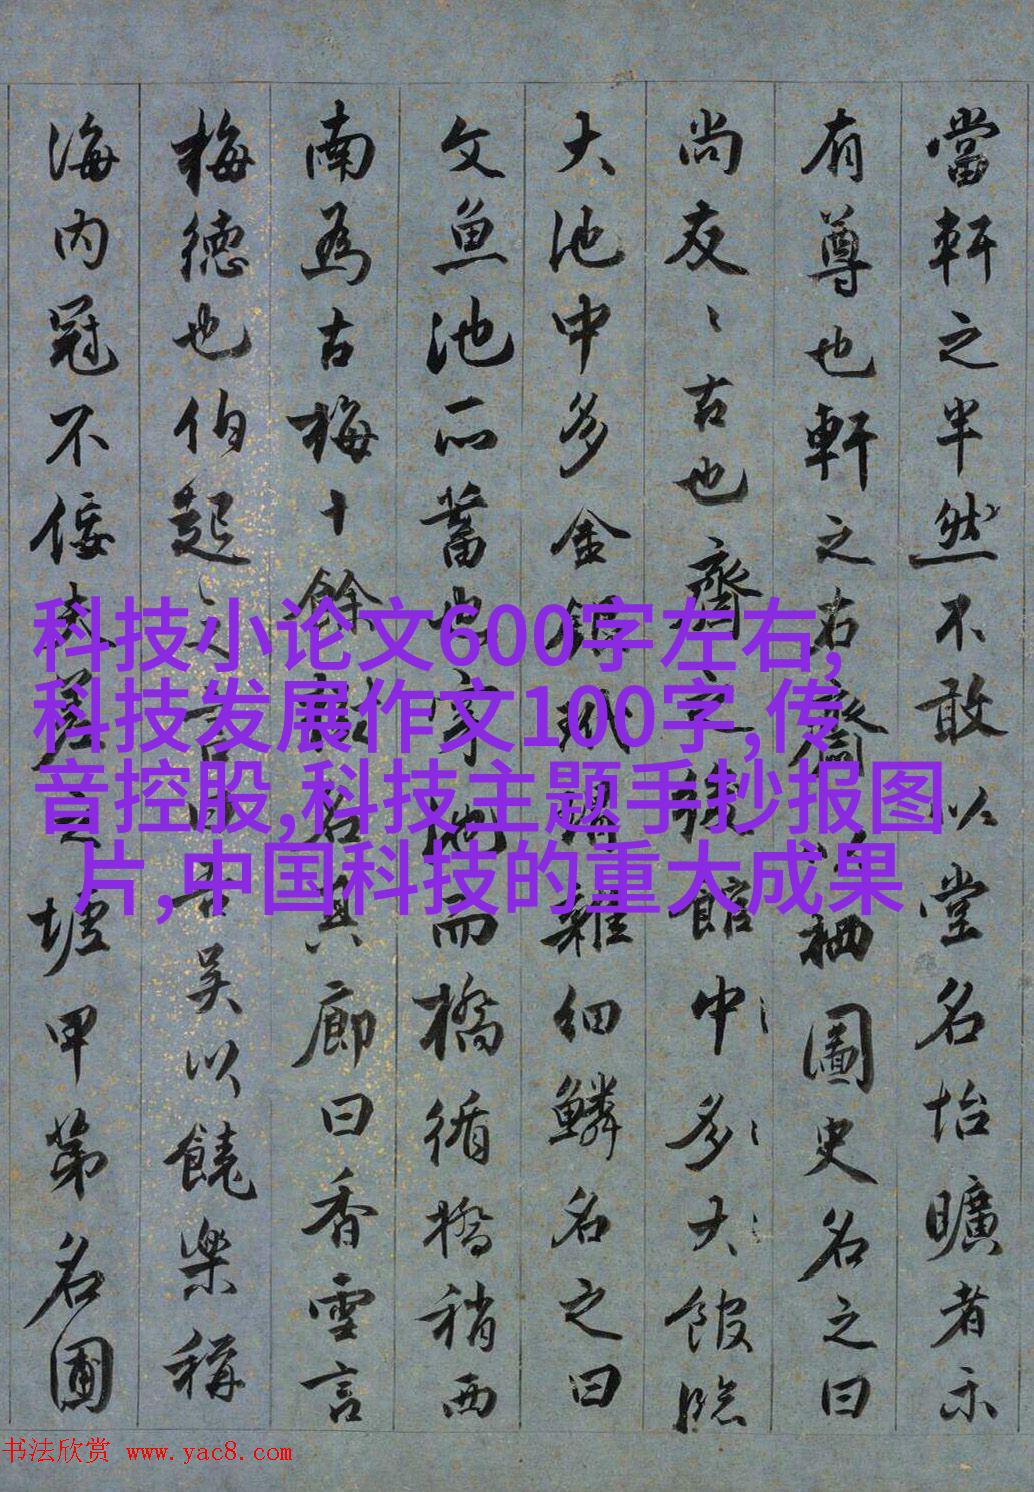 當軒之半然不敢以堂名怡曠者示
有尊也軒之右齋以栖圖史名之曰
尚友〻古也齋之後館中〻多〻大〻館臨
大池中多金銀玳瑁雜細鱗名之曰
文魚池所蓄也穿池而橋循橋稍西
南為古梅十餘樹名其廊曰香雪言
梅德也伯起之言曰古吳以饒樂稱
海内冠不佞之墟甲第名圃
科技小论文600字左右,
科技发展作文100字,传
音控股,科技主题手抄报图
片,中国科技的重大成果
书法欣赏 www.yac8.com